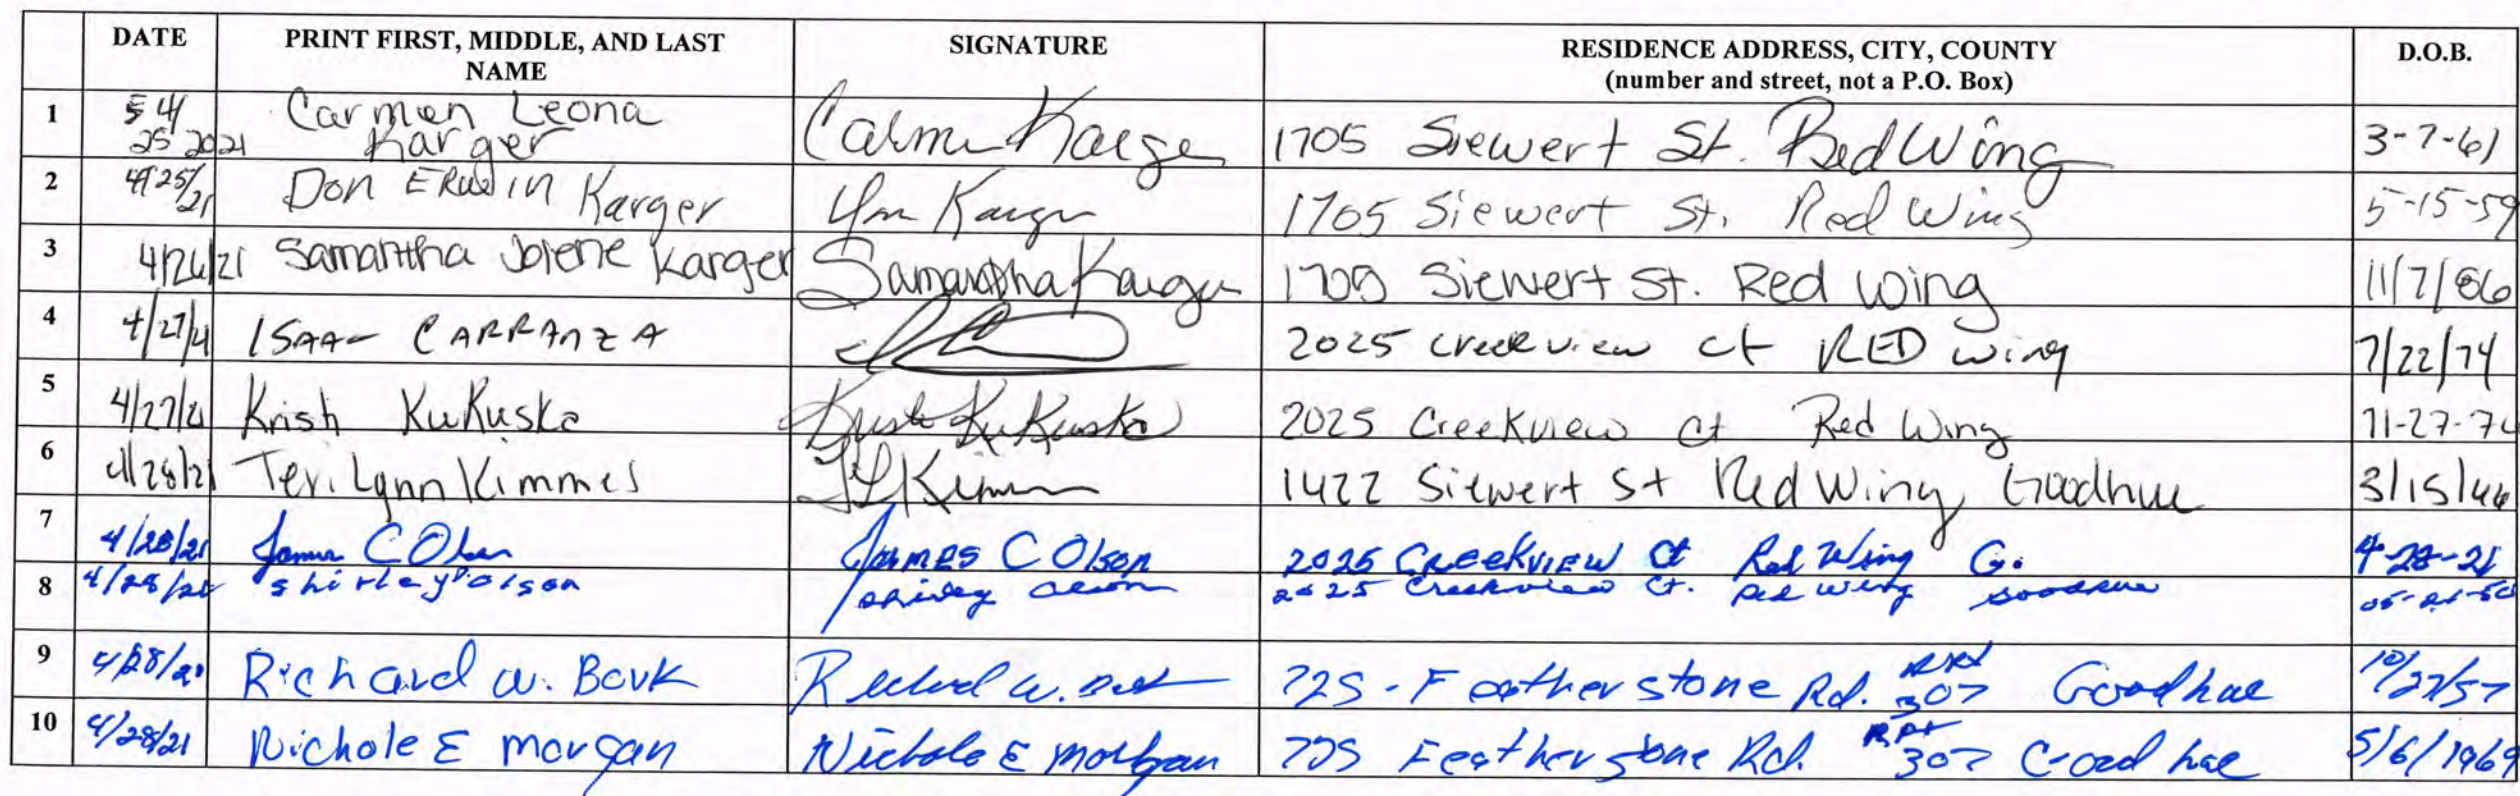 DATE PRINT FIRST, MIDDLE, AND LAST NAME SIGNATURE RESIDENCE ADDRESS, CITY, COUNTY (number and street, not a P.O. Box) D.O.B.
1 4/25 2021 Carmen Leona Karger Carmen Karger 1705 Siewert St. Red Wing 3-7-61
2 4/25/21 Don Erwin Karger Don Karger 1705 Siewert St. Red Wing 5-15-59
3 4/26/21 Samantha Jolene Karger Samantha Karger 1705 Siewert St. Red Wing 11/7/86
4 4/27/21 ISAAC CARRANZA 2025 creekview ct RED wing 7/22/74
5 4/27/21 Kristi KuKuska Kristi KuKuska 2025 Creekview Ct Red Wing 11-27-74
6 4/28/21 Teri Lynn Kimmes 1422 Siewert St Red Wing, Goodhue 3/15/
7 4/28/21 James C Olson JAMES C Olson 2025 CREEKVIEW Ct Red Wing G. 4-28-21
8 4/28/21 Shirley Olson Shirley Olson 2025 Creekview Ct. Red Wing Goodhue
9 4/28/21 Richard W. Bouk Richard W. 725 - Featherstone Rd. 307 Goodhue 10/27/57
10 4/28/21 Nichole E morgan Nichole E morgan 725 Featherstone Rd. 307 Goodhue 5/6/1969